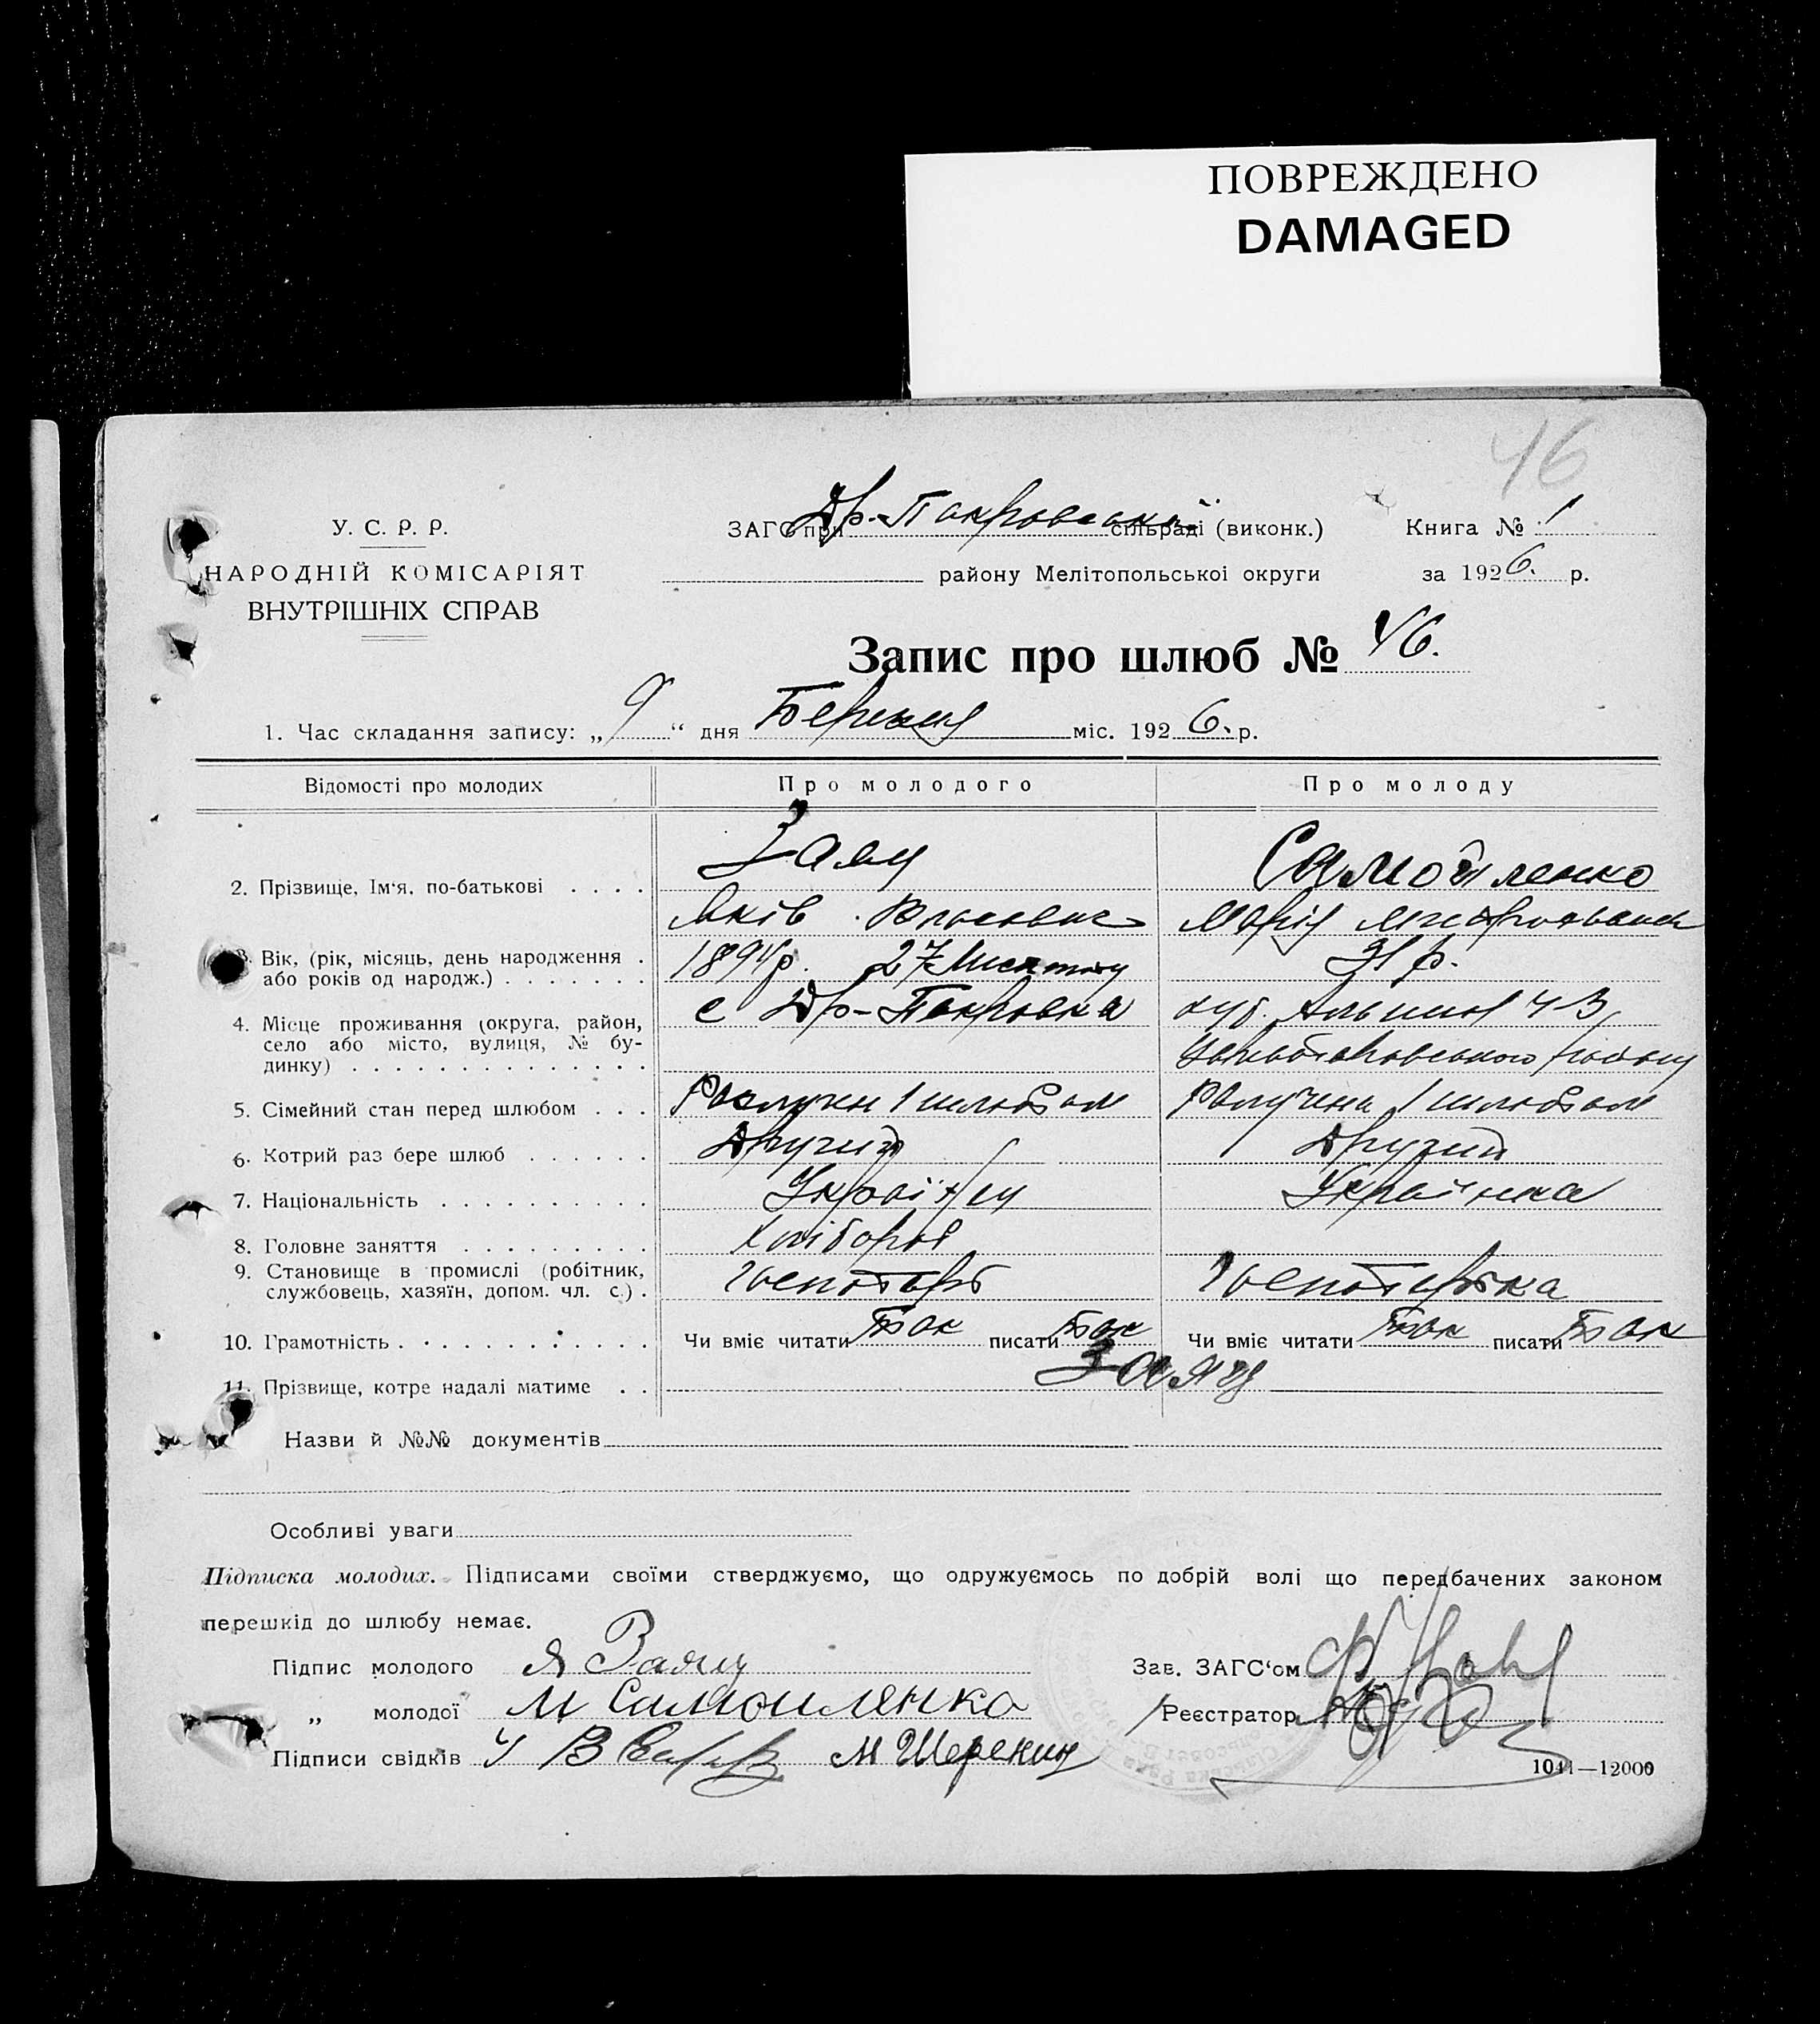 ПОВРЕЖДЕНО
DAMAGED
46
У. С. Р. Р.
НАРОДНІЙ КОМІСАРІЯТ
ВНУТРІШНІХ СПРАВ
ЗАГС при Др.-Покровській сільраді (виконк.)
району Мелітопольської округи
Книга № 1
за 1926. р.
Запис про шлюб № 46.
1. Час складання запису: „ 9 “ дня Березня міс. 1926. р.
Відомості про молодих Про молодого Про молоду
2. Прізвище, Ім‘я, по-батькові . . . . Заяц Самойленко
Яків Власович Марія
3. Вік, (рік, місяць, день народження . 1894р. 27 Листопаду 31 р.
або років од народж.) . . . . . . .
4. Місце проживання (округа, район, с Др-Покровка хут.
село або місто, вулиця, № бу-
динку) . . . . . . . . . . . . . . району
5. Сімейний стан перед шлюбом . . . 1 шлюбом 1 шлюбом
6. Котрий раз бере шлюб . . . . . . Другий Другий
7. Національність . . . . . . . . . . Українец Українка
8. Головне заняття . . . . . . . . . Хлібороб
9. Становище в промислі (робітник, Господарь Господарька
службовець, хазяїн, допом. чл. с.) .
10. Грамотність . . . . . . . . . . . Чи вміє читати Так писати Так Чи вміє читати Так писати Так
11. Прізвище, котре надалі матиме . . Заяц
Назви й №№ документів
Особливі уваги
Підписка молодих. Підписами своїми стверджуємо, що одружуємось по добрій волі що передбачених законом
перешкід до шлюбу немає.
Підпис молодого Я Заяц Зав. ЗАГС‘ом
„ молодої М Самоиленко Реєстратор
Підписи свідків М
1041—12000